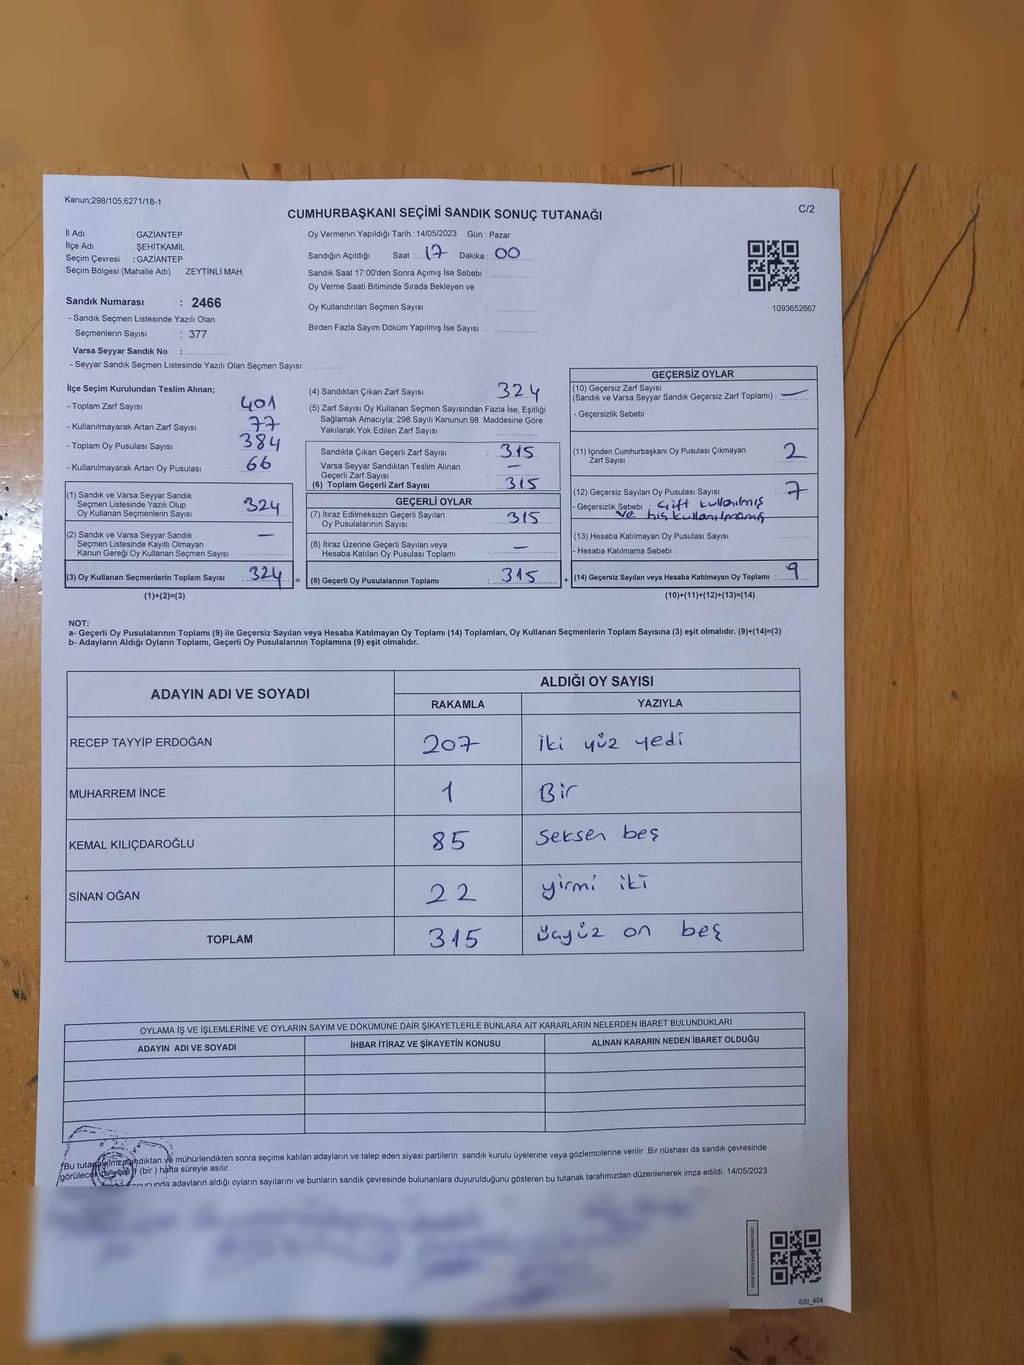 Kanun;298/105;6271/18-1
C/2
CUMHURBAŞKANI SEÇİMİ SANDIK SONUÇ TUTANAĞI
İl Adı : GAZİANTEP
İlçe Adı : ŞEHİTKAMİL
Seçim Çevresi : GAZİANTEP
Seçim Bölgesi (Mahalle Adı) : ZEYTİNLİ MAH.
Sandık Numarası : 2466
- Sandık Seçmen Listesinde Yazılı Olan
Seçmenlerin Sayısı : 377
Varsa Seyyar Sandık No :
- Seyyar Sandık Seçmen Listesinde Yazılı Olan Seçmen Sayısı:
Oy Vermenin Yapıldığı Tarih : 14/05/2023 Gün : Pazar
Sandığın Açıldığı Saat : 17 Dakika : 00
Sandık Saat 17:00'den Sonra Açımış İse Sebebi :
Oy Verme Saati Bitiminde Sırada Bekleyen ve
Oy Kullandırılan Seçmen Sayısı :
Birden Fazla Sayım Döküm Yapılmış İse Sayısı :
1093652667
İlçe Seçim Kurulundan Teslim Alınan;
- Toplam Zarf Sayısı : 401
- Kullanılmayarak Artan Zarf Sayısı : 77
- Toplam Oy Pusulası Sayısı : 384
- Kullanılmayarak Artan Oy Pusulası : 66
(1) Sandık ve Varsa Seyyar Sandık
Seçmen Listesinde Yazılı Olup
Oy Kullanan Seçmenlerin Sayısı : 324
(2) Sandık ve Varsa Seyyar Sandık
Seçmen Listesinde Kayıtlı Olmayan
Kanun Gereği Oy Kullanan Seçmen Sayısı : —
(3) Oy Kullanan Seçmenlerin Toplam Sayısı : 324 =
(1)+(2)=(3)
(4) Sandıktan Çıkan Zarf Sayısı : 324
(5) Zarf Sayısı Oy Kullanan Seçmen Sayısından Fazla İse, Eşitliği
Sağlamak Amacıyla; 298 Sayılı Kanunun 98. Maddesine Göre
Yakılarak Yok Edilen Zarf Sayısı :
Sandıkta Çıkan Geçerli Zarf Sayısı : 315
Varsa Seyyar Sandıktan Teslim Alınan
Geçerli Zarf Sayısı : —
(6) Toplam Geçerli Zarf Sayısı : 315
GEÇERLİ OYLAR
(7) İtiraz Edilmeksizin Geçerli Sayılan
Oy Pusulalarının Sayısı : 315
(8) İtiraz Üzerine Geçerli Sayılan veya
Hesaba Katılan Oy Pusulası Toplamı : —
(9) Geçerli Oy Pusulalarının Toplamı : 315 +
GEÇERSİZ OYLAR
(10) Geçersiz Zarf Sayısı
(Sandık ve Varsa Seyyar Sandık Geçersiz Zarf Toplamı) : —
- Geçersizlik Sebebi :
(11) İçinden Cumhurbaşkanı Oy Pusulası Çıkmayan
Zarf Sayısı : 2
(12) Geçersiz Sayılan Oy Pusulası Sayısı : 7
- Geçersizlik Sebebi : Çift kullanılmış
ve hiç kullanılmamış
(13) Hesaba Katılmayan Oy Pusulası Sayısı :
- Hesaba Katılmama Sebebi :
(14) Geçersiz Sayılan veya Hesaba Katılmayan Oy Toplamı : 9
(10)+(11)+(12)+(13)=(14)
NOT:
a- Geçerli Oy Pusulalarının Toplamı (9) ile Geçersiz Sayılan veya Hesaba Katılmayan Oy Toplamı (14) Toplamları, Oy Kullanan Seçmenlerin Toplam Sayısına (3) eşit olmalıdır. (9)+(14)=(3)
b- Adayların Aldığı Oyların Toplamı, Geçerli Oy Pusulalarının Toplamına (9) eşit olmalıdır.
ADAYIN ADI VE SOYADI
ALDIĞI OY SAYISI
RAKAMLA YAZIYLA
RECEP TAYYİP ERDOĞAN 207 iki yüz yedi
MUHARREM İNCE 1 Bir
KEMAL KILIÇDAROĞLU 85 seksen beş
SİNAN OĞAN 22 yirmi iki
TOPLAM 315 üçyüz on beş
OYLAMA İŞ VE İŞLEMLERİNE VE OYLARIN SAYIM VE DÖKÜMÜNE DAİR ŞİKAYETLERLE BUNLARA AİT KARARLARIN NELERDEN İBARET BULUNDUKLARI
ADAYIN ADI VE SOYADI İHBAR İTİRAZ VE ŞİKAYETİN KONUSU ALINAN KARARIN NEDEN İBARET OLDUĞU
Bu mühürlendikten sonra seçime katılan adayların ve talep eden siyasi partilerin sandık kurulu üyelerine veya gözlemcilerine verilir .Bir nüshası da sandık çevresinde
(bir ) hafta süreyle asılır.
adayların aldığı oyların sayılarını ve bunların sandık çevresinde bulunanlara duyurulduğunu gösteren bu tutanak tarafımızdan düzenlenerek imza edildi. 14/05/2023
SSI_404